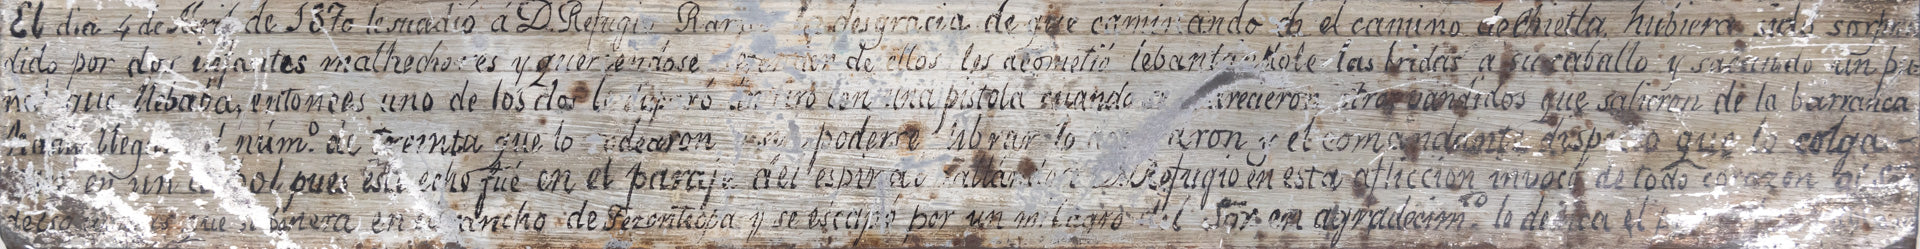 El dia 4 de Abril de 1870 le suadió á D. Refugio la desgracia de que caminando en el camino de Chietla, hubiera sido sorpren
dido por dos infantes malhechores y queriendose de ellos les acometió lebantandole las bridas a su caballo y sacando un pu
ñal que llebaba, entonces uno de los dos le disparó un tiro con una pistola cuando aparecieron otros vandidos que salieron de la barranca
hasta llegar al núm.º de treinta que lo rodearon y sin poderse librar lo y el comandante dispuso que lo colga
en un arbol pues este echo fué en el paraje del espinal hallandose D. Refugio en esta aflicción invocó de todo corazon al
que se benera en el rancho de Tezonteopa y se escapó por un milagro del Sor. en agradecimto. le dedica el